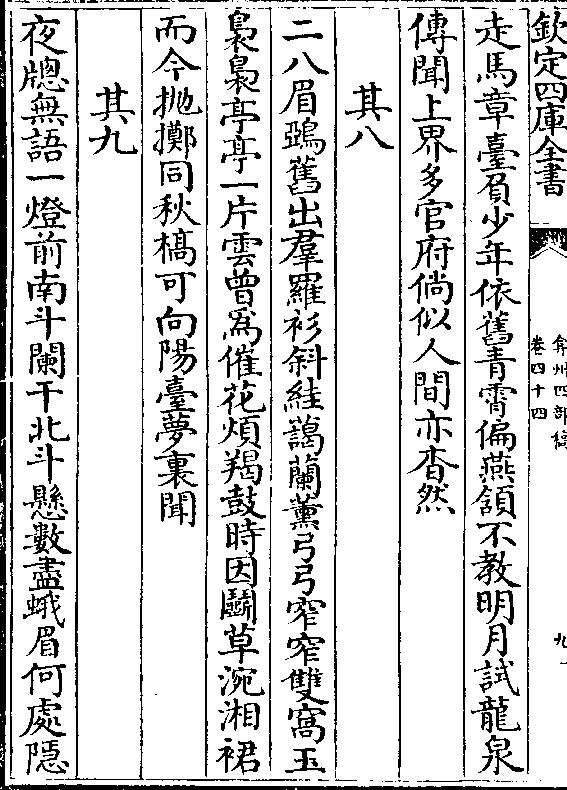 欽定四庫全書
弇州四部稿
卷四十四
九
走馬章臺負少年依舊青霄偏燕頷不教明月試龍泉
傳聞上界多官府倘似人間亦杳然
其八
二八眉鵶舊出羣羅衫斜絓藹蘭薰弓弓窄窄雙窩玉
裊裊亭亭一片雲曾為催花煩羯鼓時因鬭草涴湘裙
而今抛擲同秋槁可向陽臺夢裏聞
其九
夜牕無語一燈前南斗闌干北斗懸數盡蛾眉何處隠